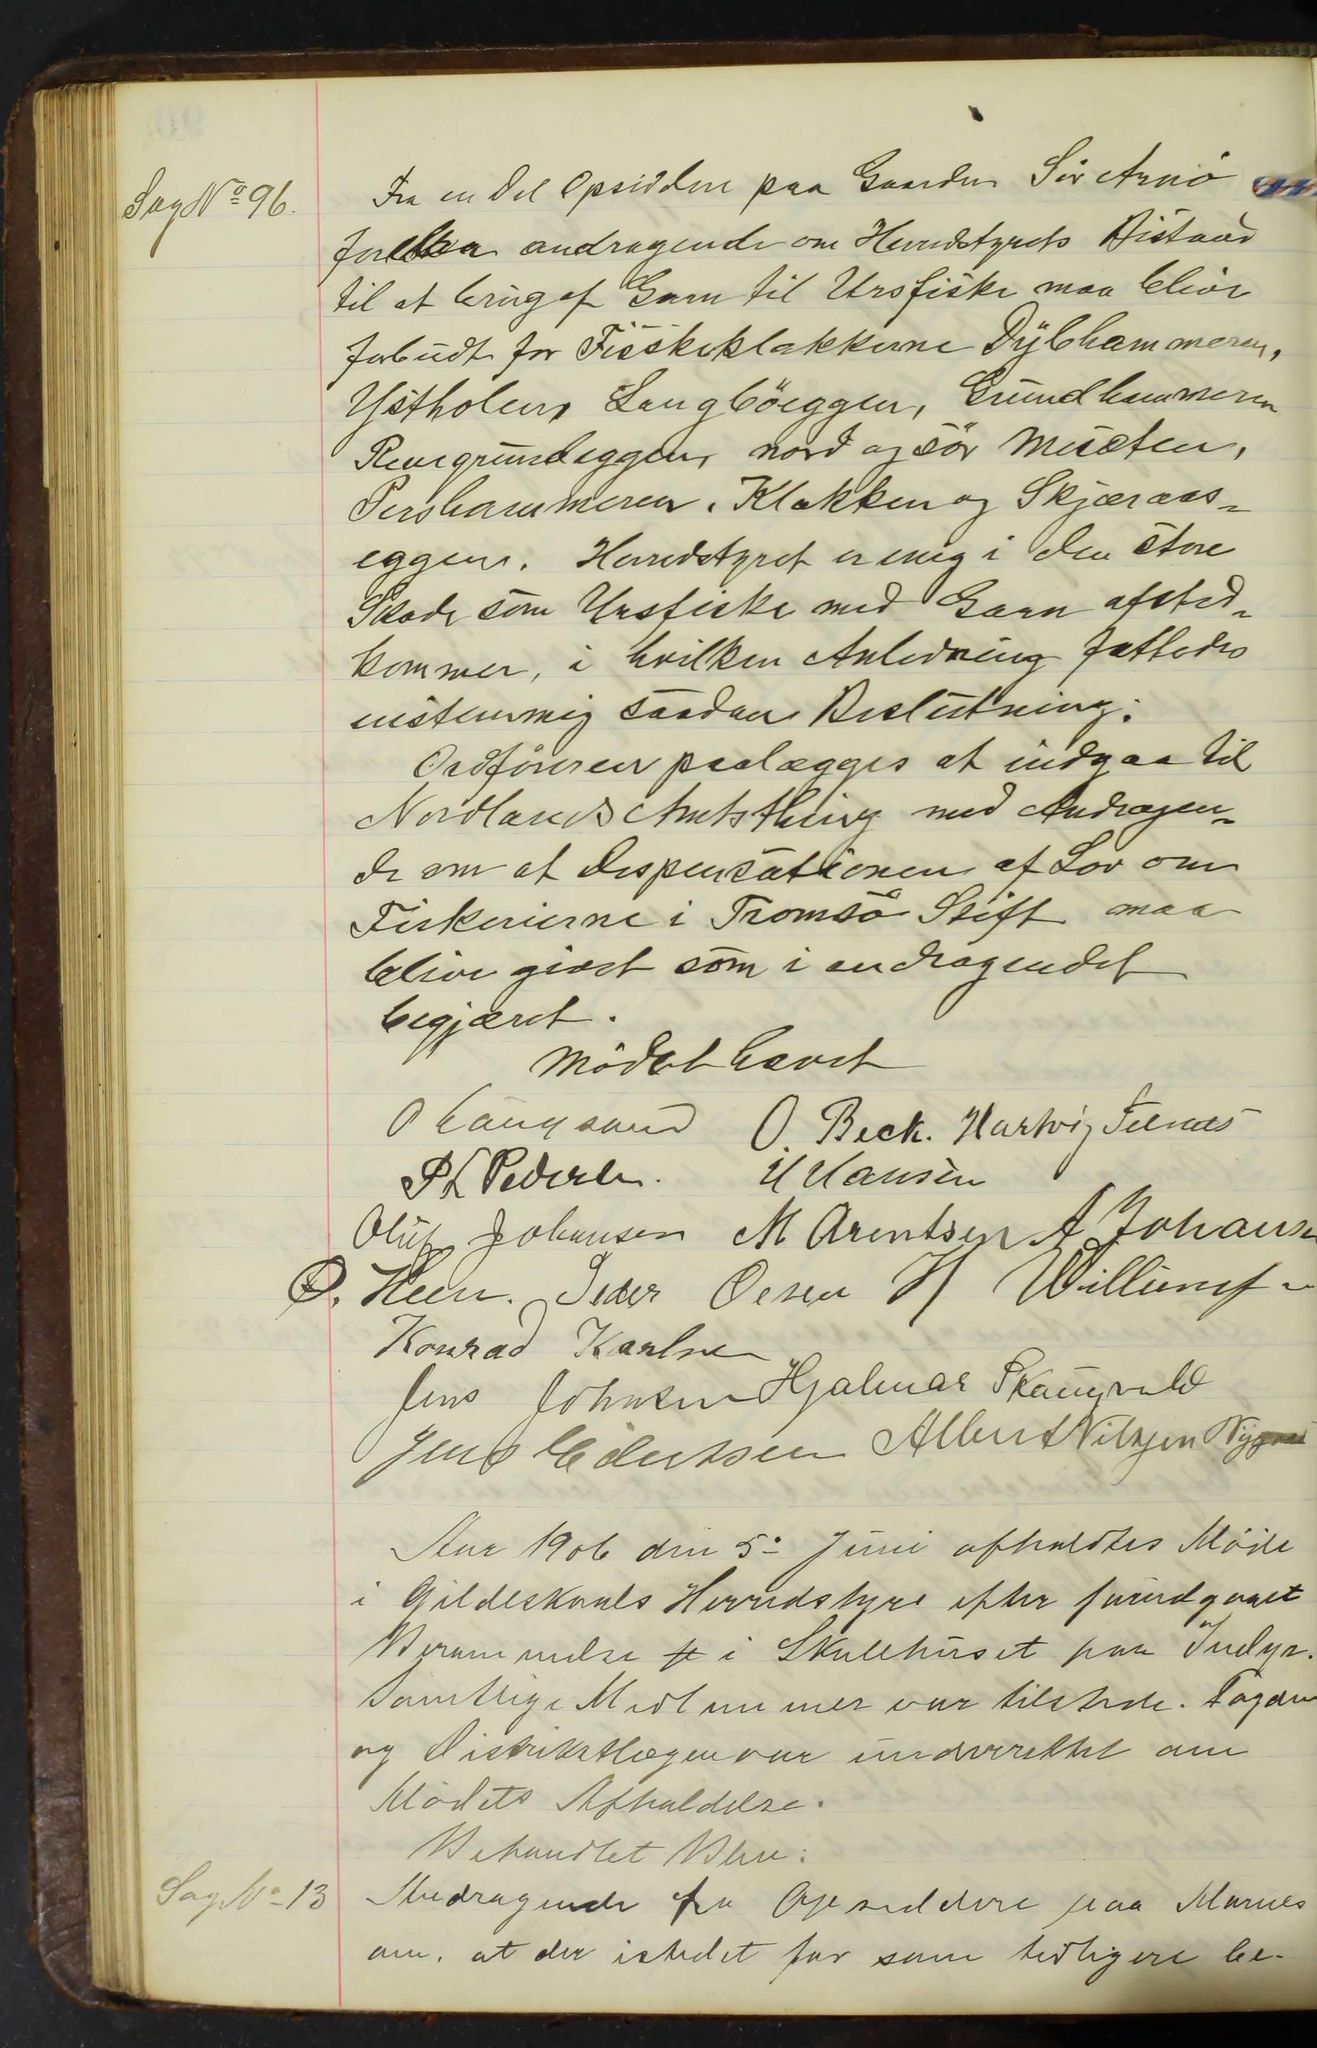 Sag No 96.
Fra en Del Opsiddere paa Gaarden Sör Arnö
andragende om Herredstyrets Bistand
til at brug af Garn til Ursfiske maa blive
forbudt for Fisskeklakkerne Dybhammeren,
Ystholen, Langböeggen, Grundhammeren
Revegrundeggen, nord og sör Musten,
Pershammeren, Klakken og Skjæraas-
eggen. Herredstyret er enig i den store
Skade som Ursfiske med Garn afsted-
kommer, i hvilken Anledning fattedes
enstemmig saadan Beslutning:
Ordföreren paalægges at indgaa til
Nordlands Amtsthing med Andragen-
de om at dispensationen af Lov om
Fiskerierne i Tromsö Stift maa
blive givet som i andragendet
begjæret.
Mödet hævet
O Langsand O. Beck. Hartvig
P L Pedersen. H Hansen
Oluf Johansen M Arentsen A Johansen
O. Heen. Peder Olsen H Willumsen
Konrad Karlsen
Jens Johnsen Hjalmar Skaugvold
Jens Edvertsen Albert Nilsen Nygaard
Aar 1906 den 5te Juni afholdtes Möde
i Gildeskaals Herredstyre efter forudgaaet
Berammelse i Skolehuset paa Inndyr.
Samtlige Medlemmer var tilstede. Fogden
og Distriktslægen var underrettet om
Mödets Afholdelse.
Behandlet Blev:
Sag No 13
Andragende fra Opsiddere paa Marnes
om, at der istedet for som tidligere be-